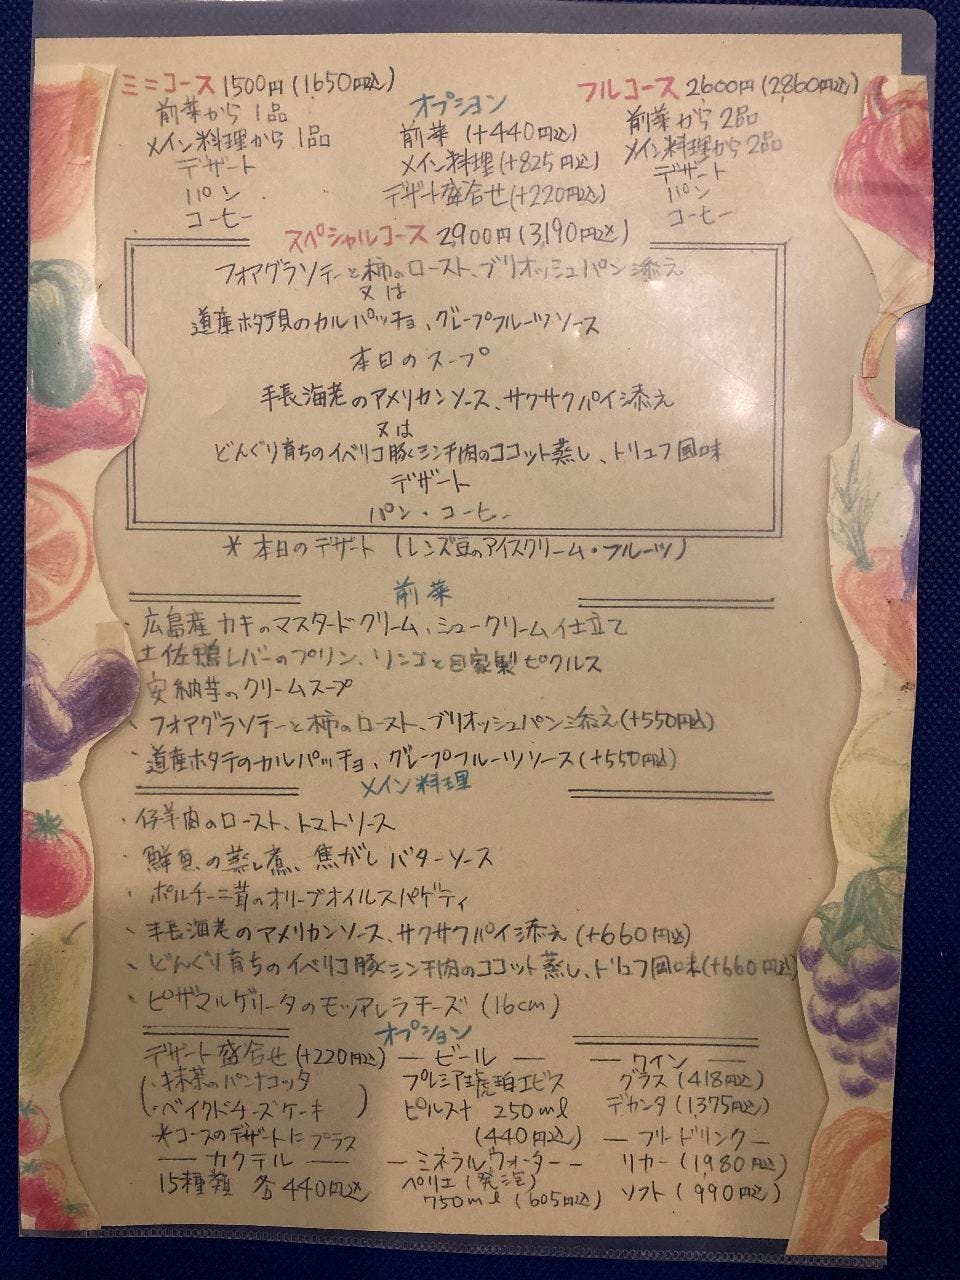 ミニコース 1500円(1650円込)
前菜から 1品
メイン料理から 1品
デザート
パン
コーヒー
オプション
前菜 (+440円込)
メイン料理(+825円込)
デザート盛合せ(+220円込)
フルコース 2600円(2860円込)
前菜から 2品
メイン料理から 2品
デザート
パン
コーヒー
スペシャルコース 2,900円(3,190円込)
フォアグラソテーと柿のロースト、ブリオッシュパン添え
又は
道産ホタテ貝のカルパッチョ、グレープフルーツソース
本日のスープ
手長海老のアメリカンソース、サクサクパイ添え
又は
どんぐり育ちのイベリコ豚ミンチ肉のココット蒸し、トリュフ風味
デザート
パン・コーヒー
* 本日のデザート (レンズ豆のアイスクリーム・フルーツ)
前菜
・広島産カキのマスタードクリーム、シュークリーム仕立て
土佐鴨レバーのプリン、リンゴと自家製ピクルス
安納芋のクリームスープ
・フォアグラソテーと柿のロースト、ブリオッシュパン添え(+550円込)
・道産ホタテのカルパッチョ、グレープフルーツソース(+550円込)
メイン料理
・仔羊肉のロースト、トマトソース
・鮮魚の蒸し煮、焦がしバターソース
・ポルチーニ茸のオリーブオイルスパゲティ
・手長海老のアメリカンソース、サクサクパイ添え(+660円込)
・どんぐり育ちのイベリコ豚ミンチ肉のココット蒸し、トリュフ風味(+660円込)
・ピザマルゲリータのモッツアレラチーズ (16cm)
オプション
デザート盛合せ(+220円込)
(・抹茶のパンナコッタ
・ベイクドチーズケーキ)
*コースのデザートにプラス
― カクテル ―
15種類 各440円込
― ビール ―
プレミア琥珀エビス
ピルスナ 250ml
(440円込)
― ミネラルウォーター ―
ペリエ(発泡)
750ml(605円込)
― ワイン ―
グラス(418円込)
デカンタ(1375円込)
― フリードリンク ―
リカー(1980円込)
ソフト(990円込)